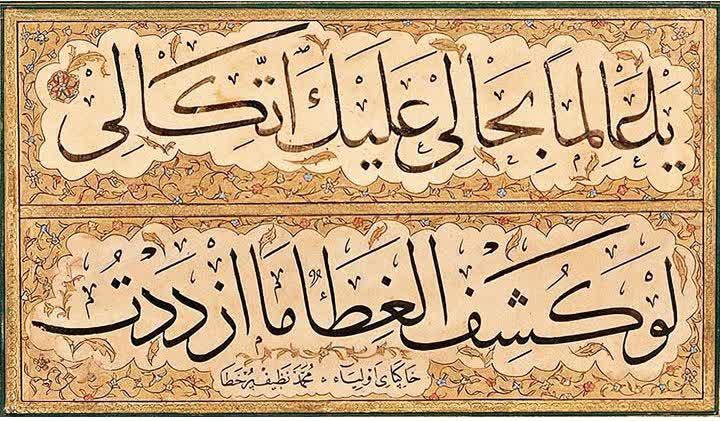 يا عالما بحالي عليك اتكالي
لو كشف الغطاء ما ازددت
خاكپاي اولياء محمد نظيف